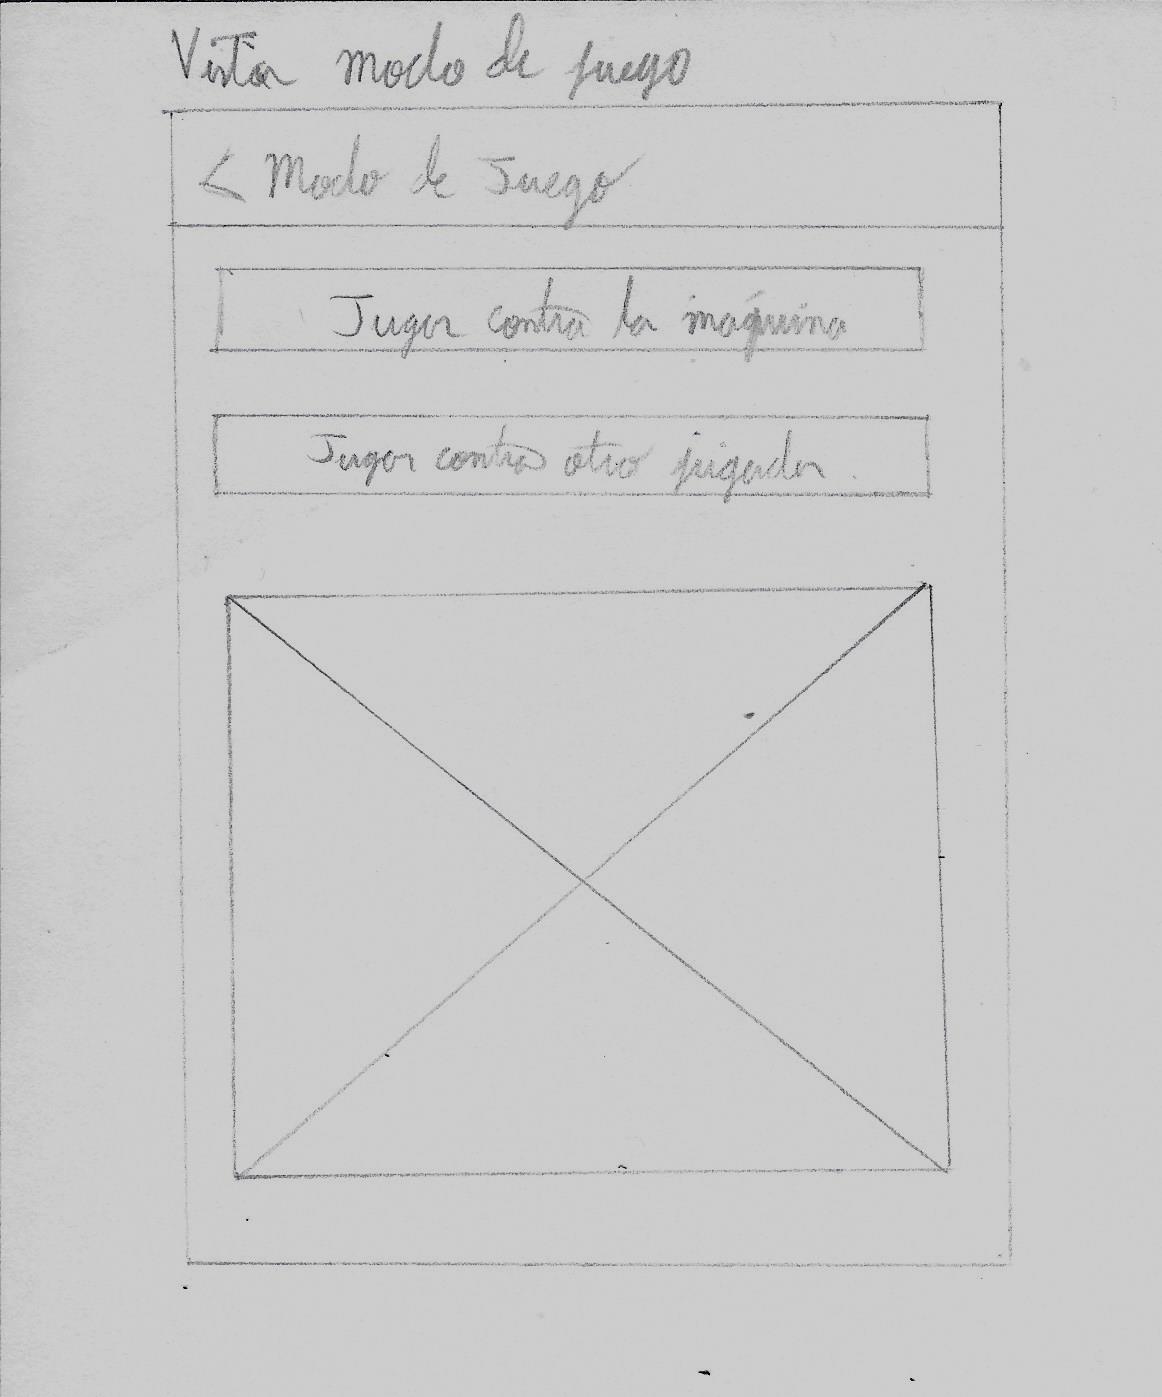 Vista modo de juego
< Modo de Juego
Jugar contra la máquina
Jugar contra otro jugador.